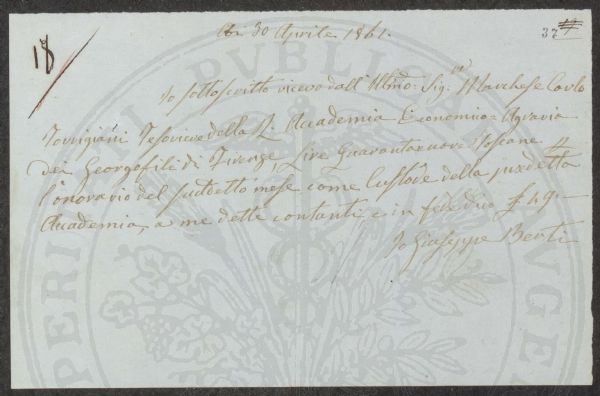 18
37
Adi 30 Aprile 1861.
Io sottoscritto ricevo dall' Illmo: Sigre: Marchese Carlo
Torrigiani Tesoriere della R. Accademia Economico=Agraria
dei Georgofili di Firenze, Lire Quarantanove Toscane p
l'onorario del suddetto mese come Custode della predetta
Accademia, a me dette contanti, e in fede dico £ 49.—
Io Giuseppe Berti
PUBLICAE